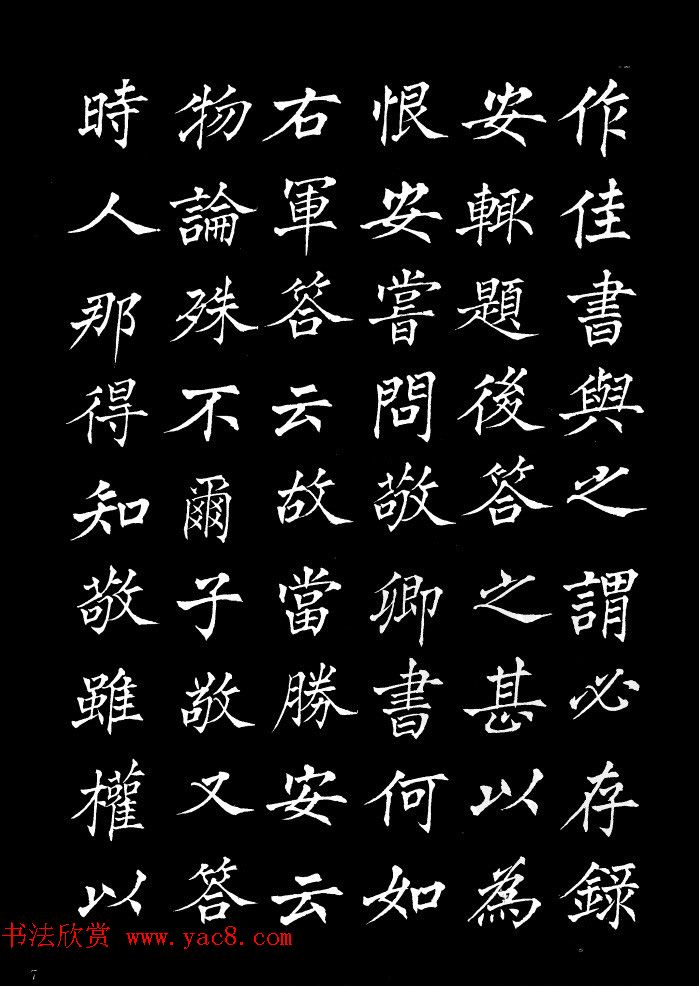 作佳書與之謂必存錄
安輙題後答之甚以為
恨安嘗問敬卿書何如
右軍答云故當勝安云
物論殊不爾子敬又答
時人那得知敬雖權以
书法欣赏 www.yac8.com
7